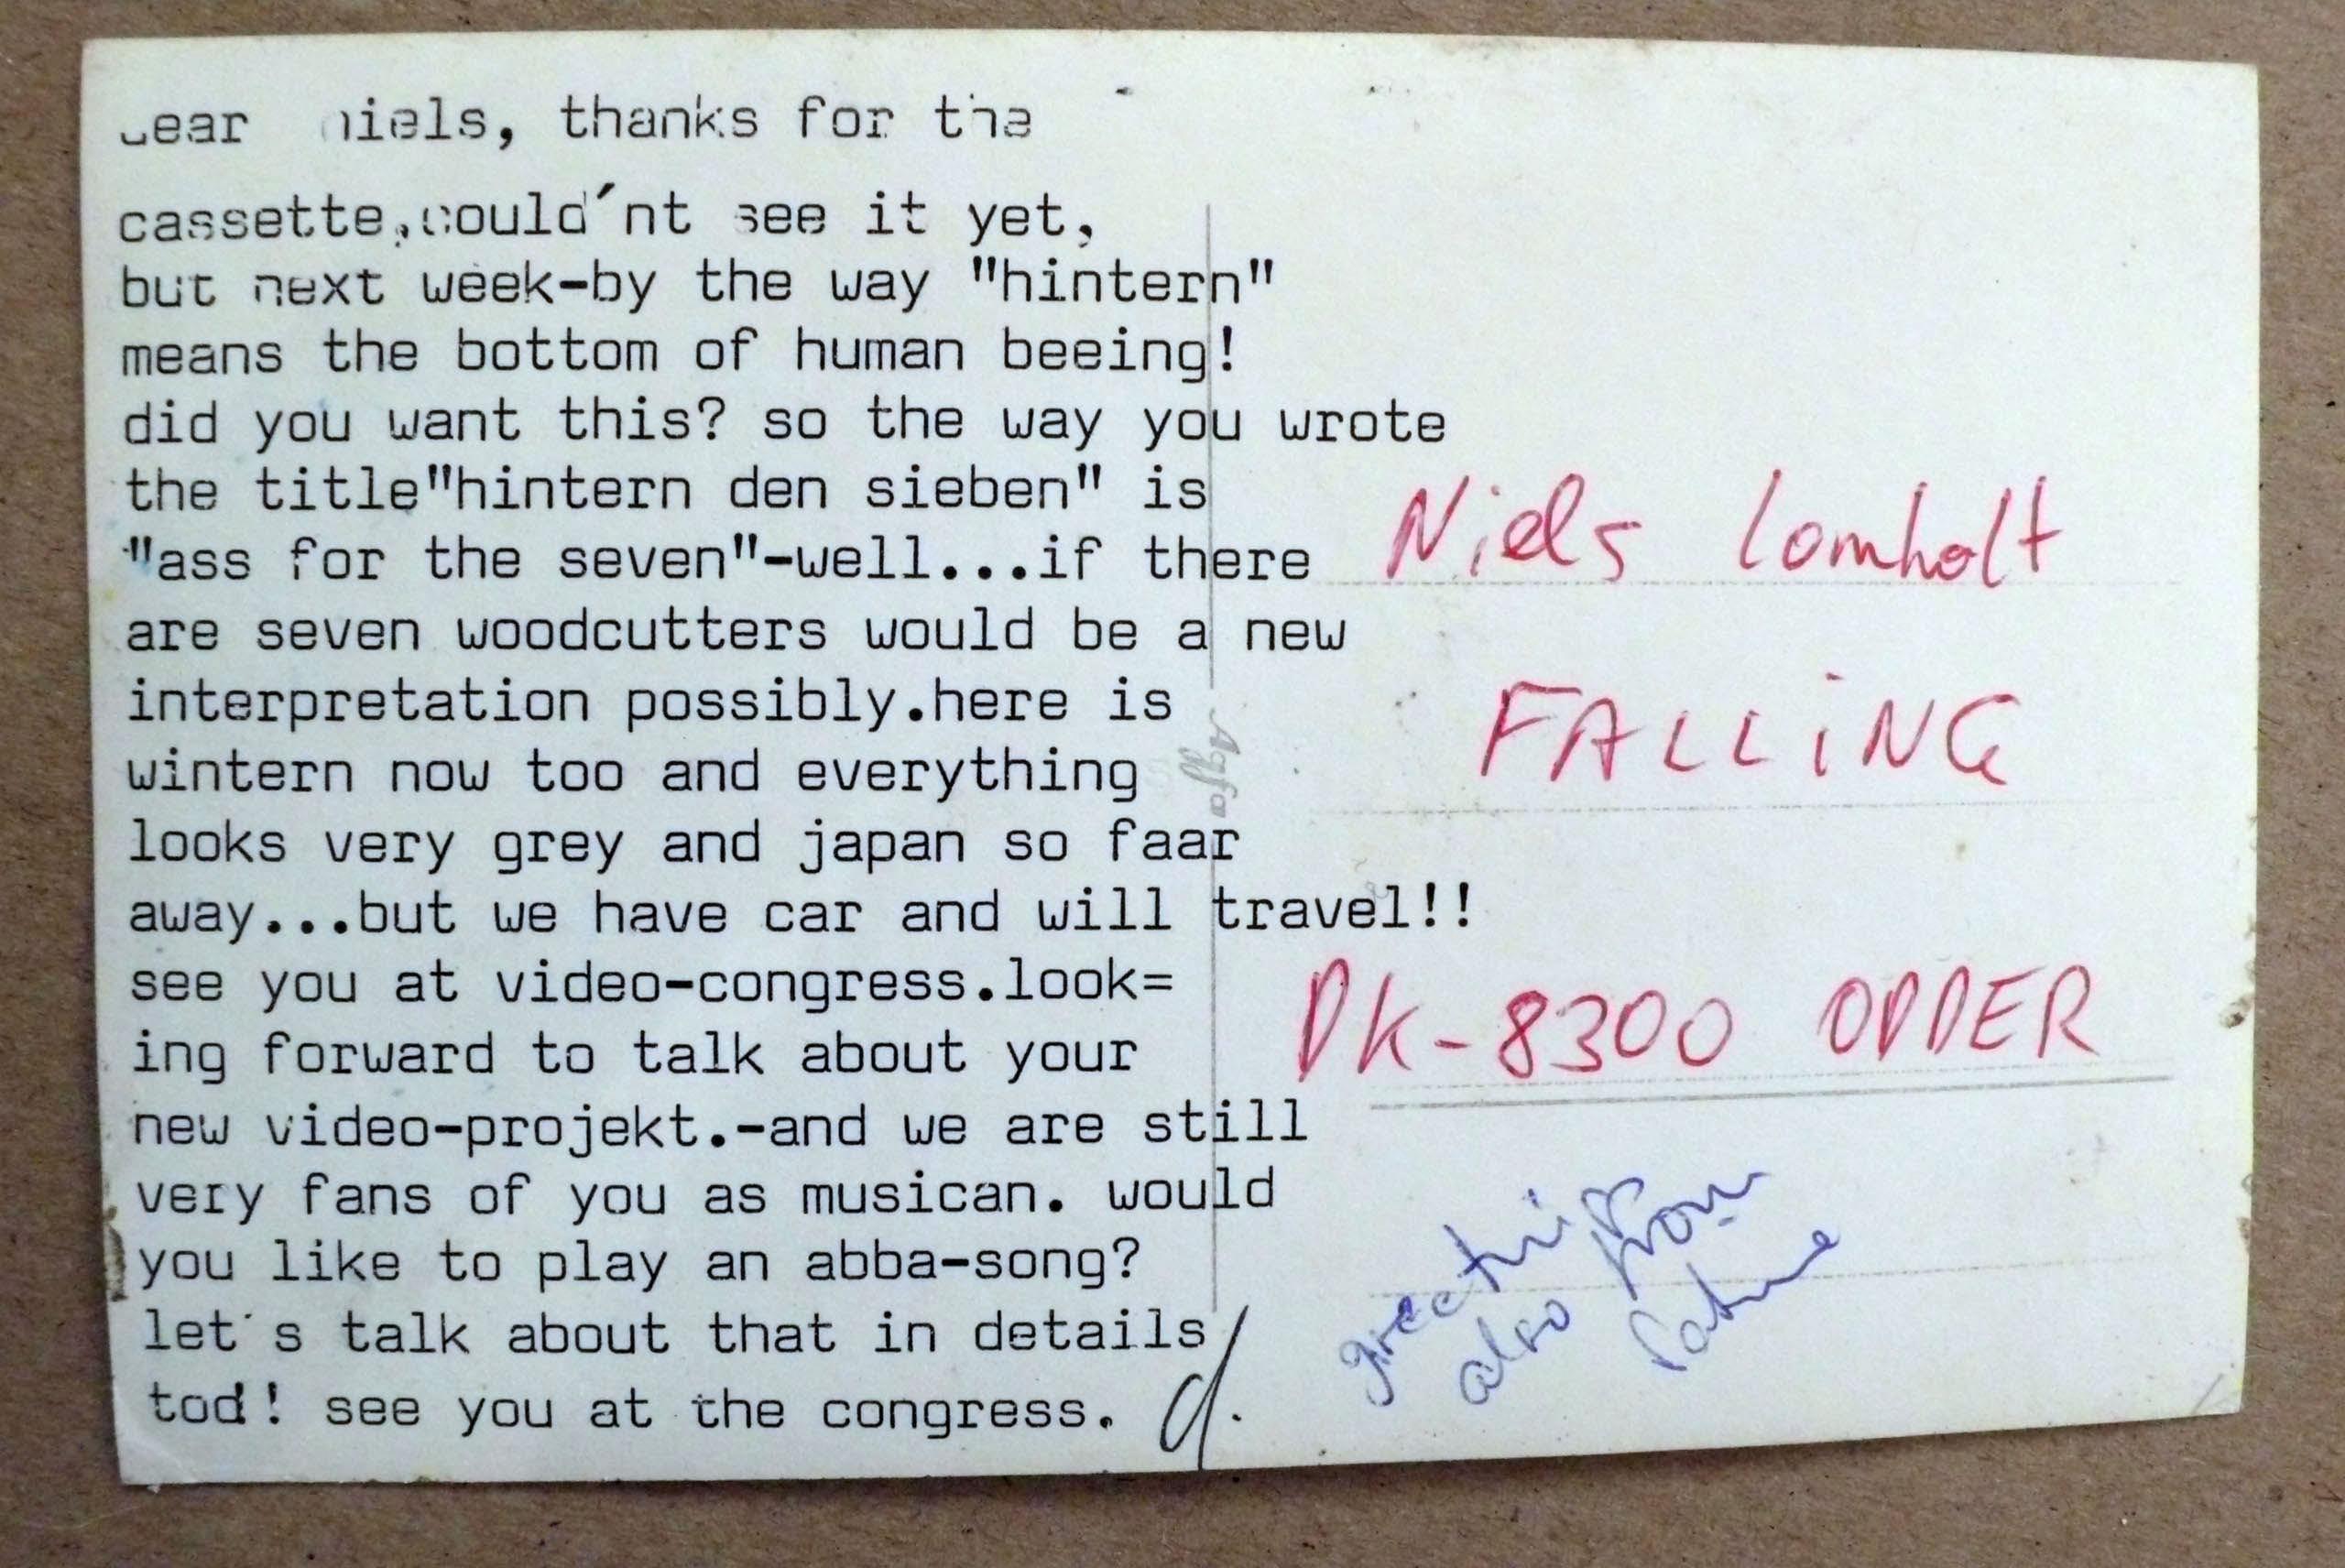 dear niels, thanks for the
cassette,could´nt see it yet,
but next week-by the way "hintern"
means the bottom of human beeing!
did you want this? so the way you wrote
the title"hintern den sieben" is
"ass for the seven"-well...if there
are seven woodcutters would be a new
interpretation possibly.here is
wintern now too and everything
looks very grey and japan so faar
away...but we have car and will travel!!
see you at video-congress.look=
ing forward to talk about your
new video-projekt.-and we are still
very fans of you as musican. would
you like to play an abba-song?
let´s talk about that in details
tod! see you at the congress. d.
Agfa
Niels Lomholt
FALLiNG
DK-8300 ODDER
also from